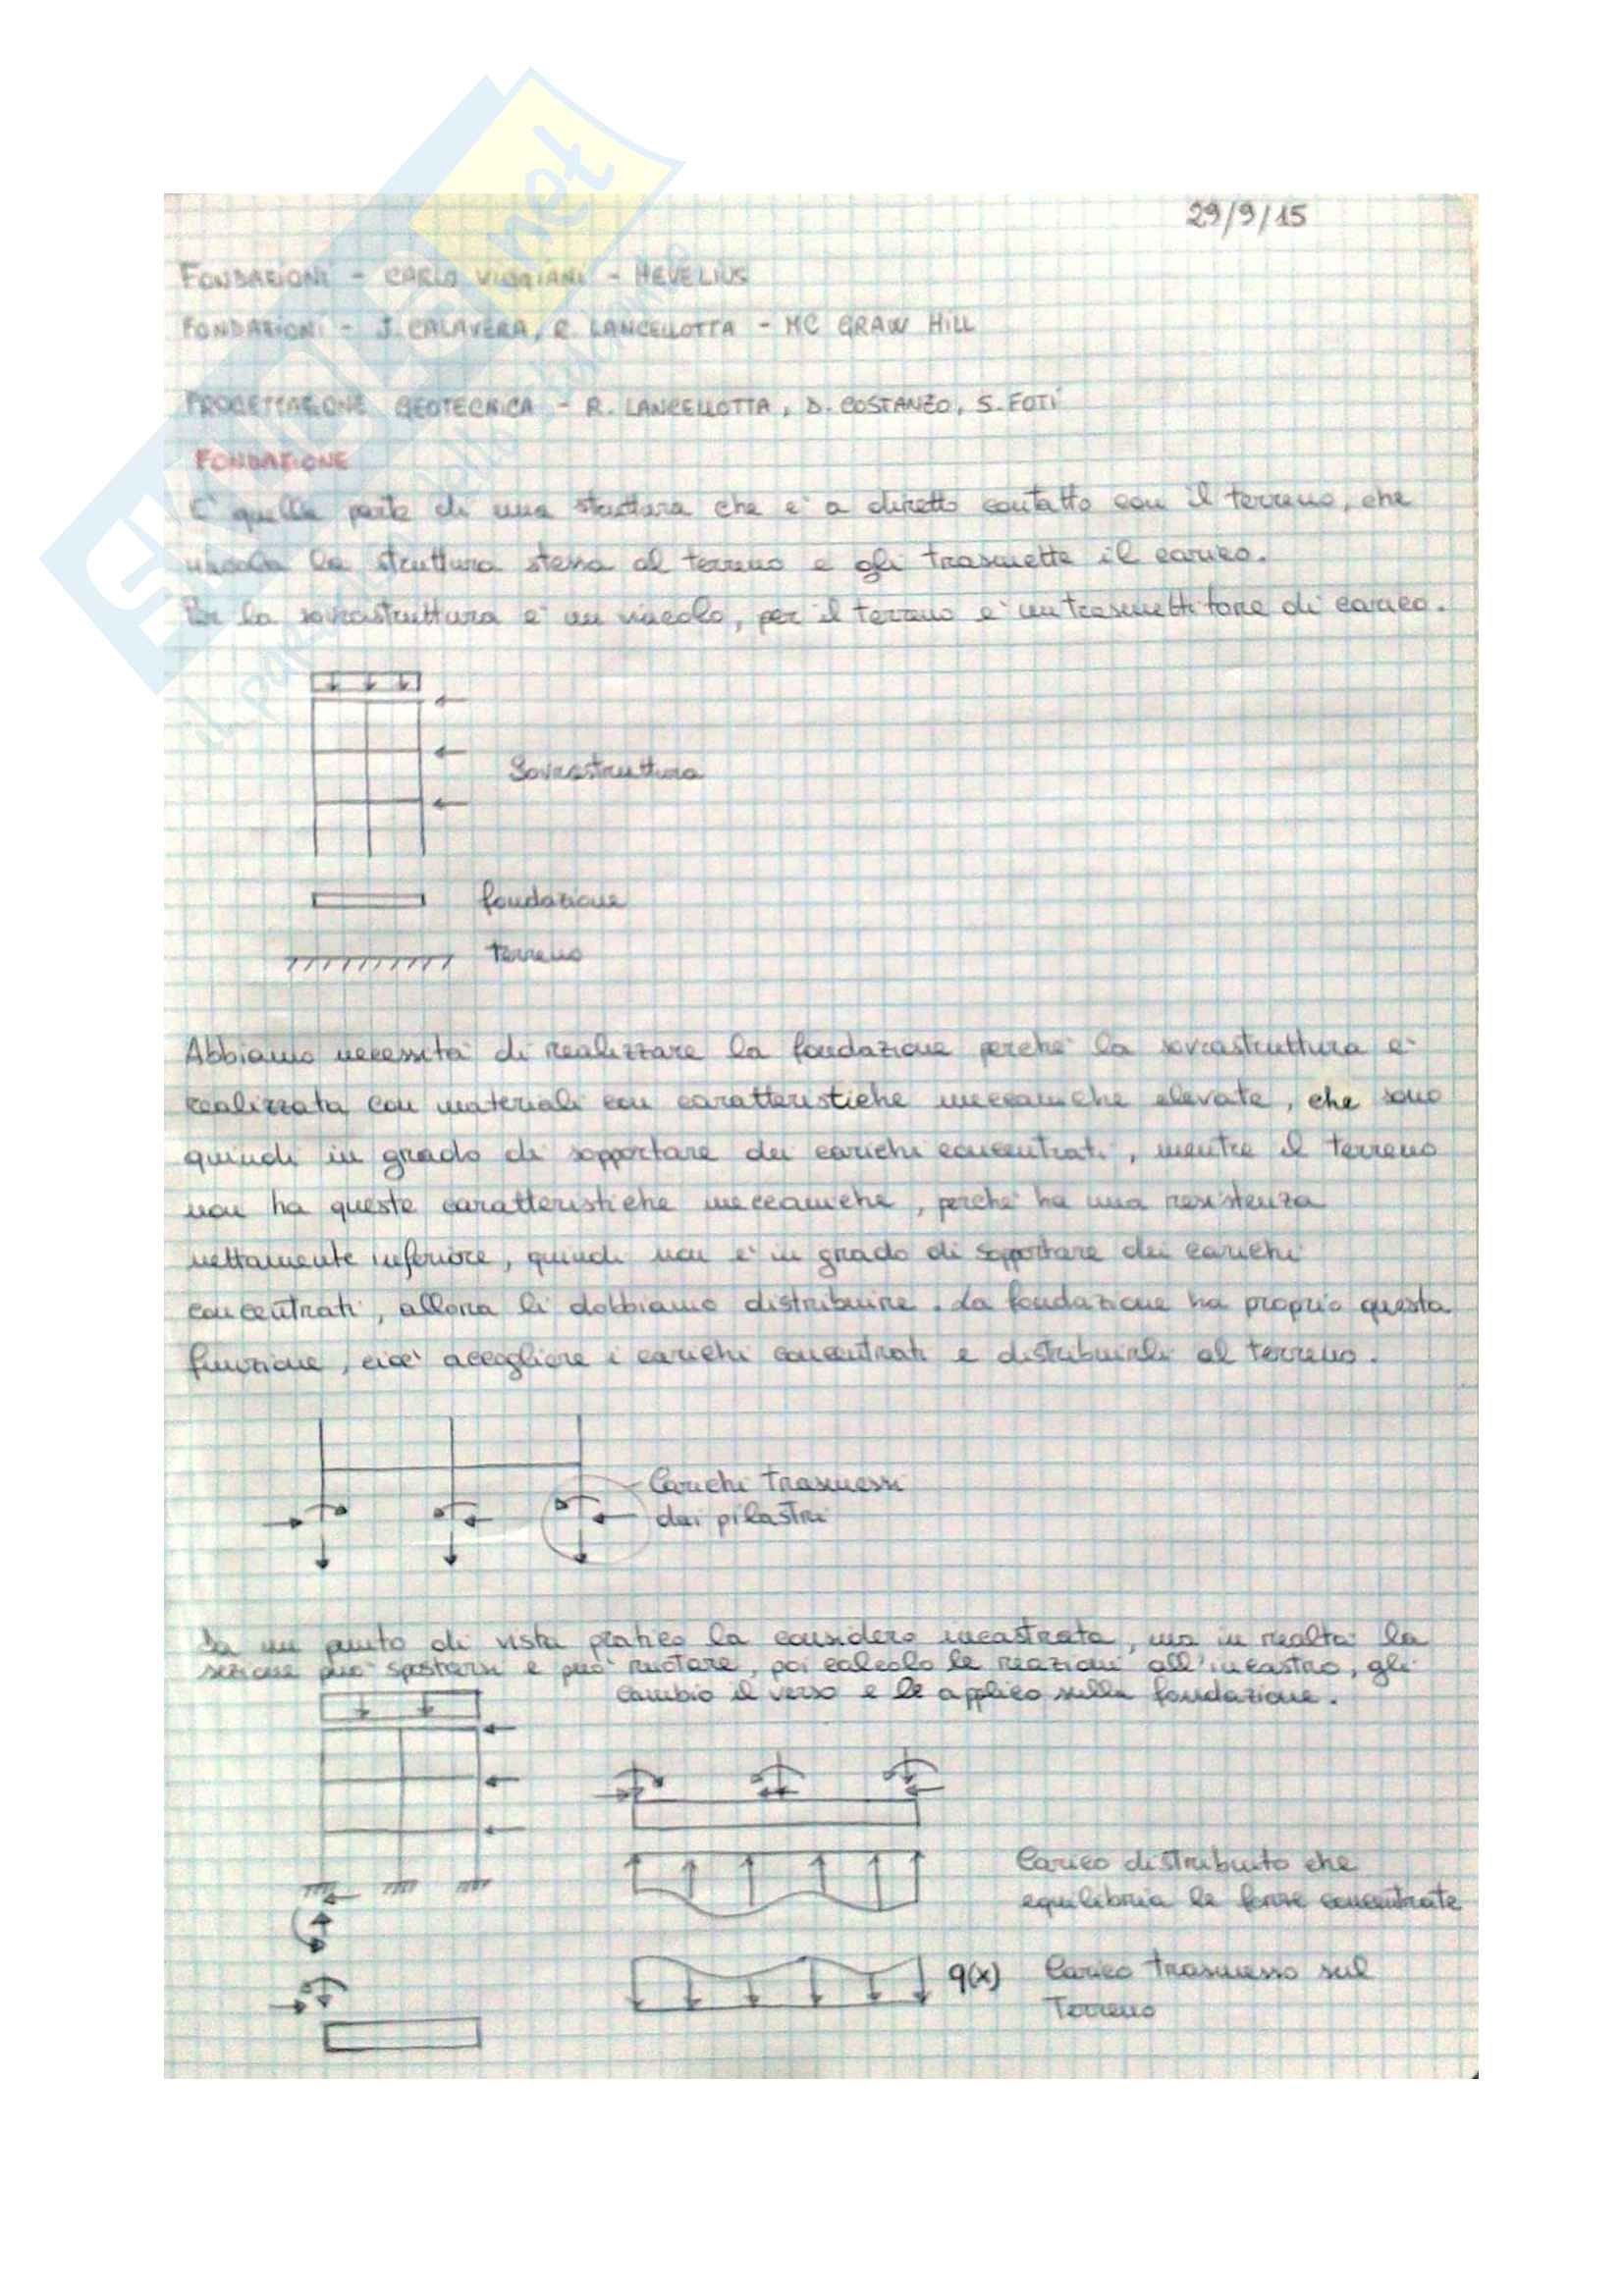 29/9/15
FONDAZIONI - CARLO VIGGIANI - HEVELIUS
FONDAZIONI - J. CALAVERA, R. LANCELLOTTA - MC GRAW HILL
PROGETTAZIONE GEOTECNICA - R. LANCELLOTTA, D. COSTANZO, S. FOTI
FONDAZIONE
E' quella parte di una struttura che e' a diretto contatto con il terreno, che
vincola la struttura stessa al terreno e gli trasmette il carico.
Per la sovrastruttura e' un vincolo, per il terreno e' un trasmettitore di carico.
Sovrastruttura
fondazione
Terreno
Abbiamo necessita' di realizzare la fondazione perche' la sovrastruttura e'
realizzata con materiali con caratteristiche meccaniche elevate, che sono
quindi in grado di sopportare dei carichi concentrati, mentre il terreno
non ha queste caratteristiche meccaniche, perche' ha una resistenza
nettamente inferiore, quindi non e' in grado di sopportare dei carichi
concentrati, allora li dobbiamo distribuire. La fondazione ha proprio questa
funzione, cioe' accogliere i carichi concentrati e distribuirli al terreno.
Carichi trasmessi
dai pilastri
Da un punto di vista pratico la considero incastrata, ma in realta' la
sezione puo' spostarsi e puo' ruotare, poi calcolo le reazioni all'incastro, gli
cambio il verso e le applico sulla fondazione.
Carico distribuito che
equilibria le forze concentrate
q(x) Carico trasmesso sul
Terreno
SKUOLA.net
il paradiso dello studente